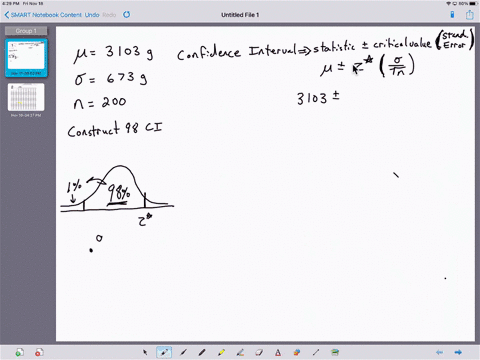 4:28 PM Fri Nov 16
Untitled File 1
SMART Notebook Content
Undo
Redo
Group 1
μ = 3103 g
σ = 673 g
n = 200
Construct 98 CI
Confidence Interval ⇒ statistic ± critical value (Stand. Error)
μ ± z* (σ/√n)
3103 ±
1%
98%
z*
.0